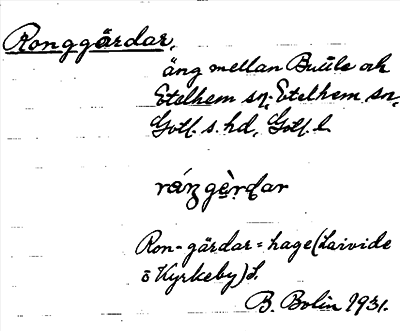 Ronggärdar,
äng mellan Buttle och
Etelhem sn, Etelhem sn,
Gotl. s. hd, Gotl. l.
gèrdar
Ron-gärdar = hage (Laivide
o Kyrkeby) L
B. Bolin 1931.